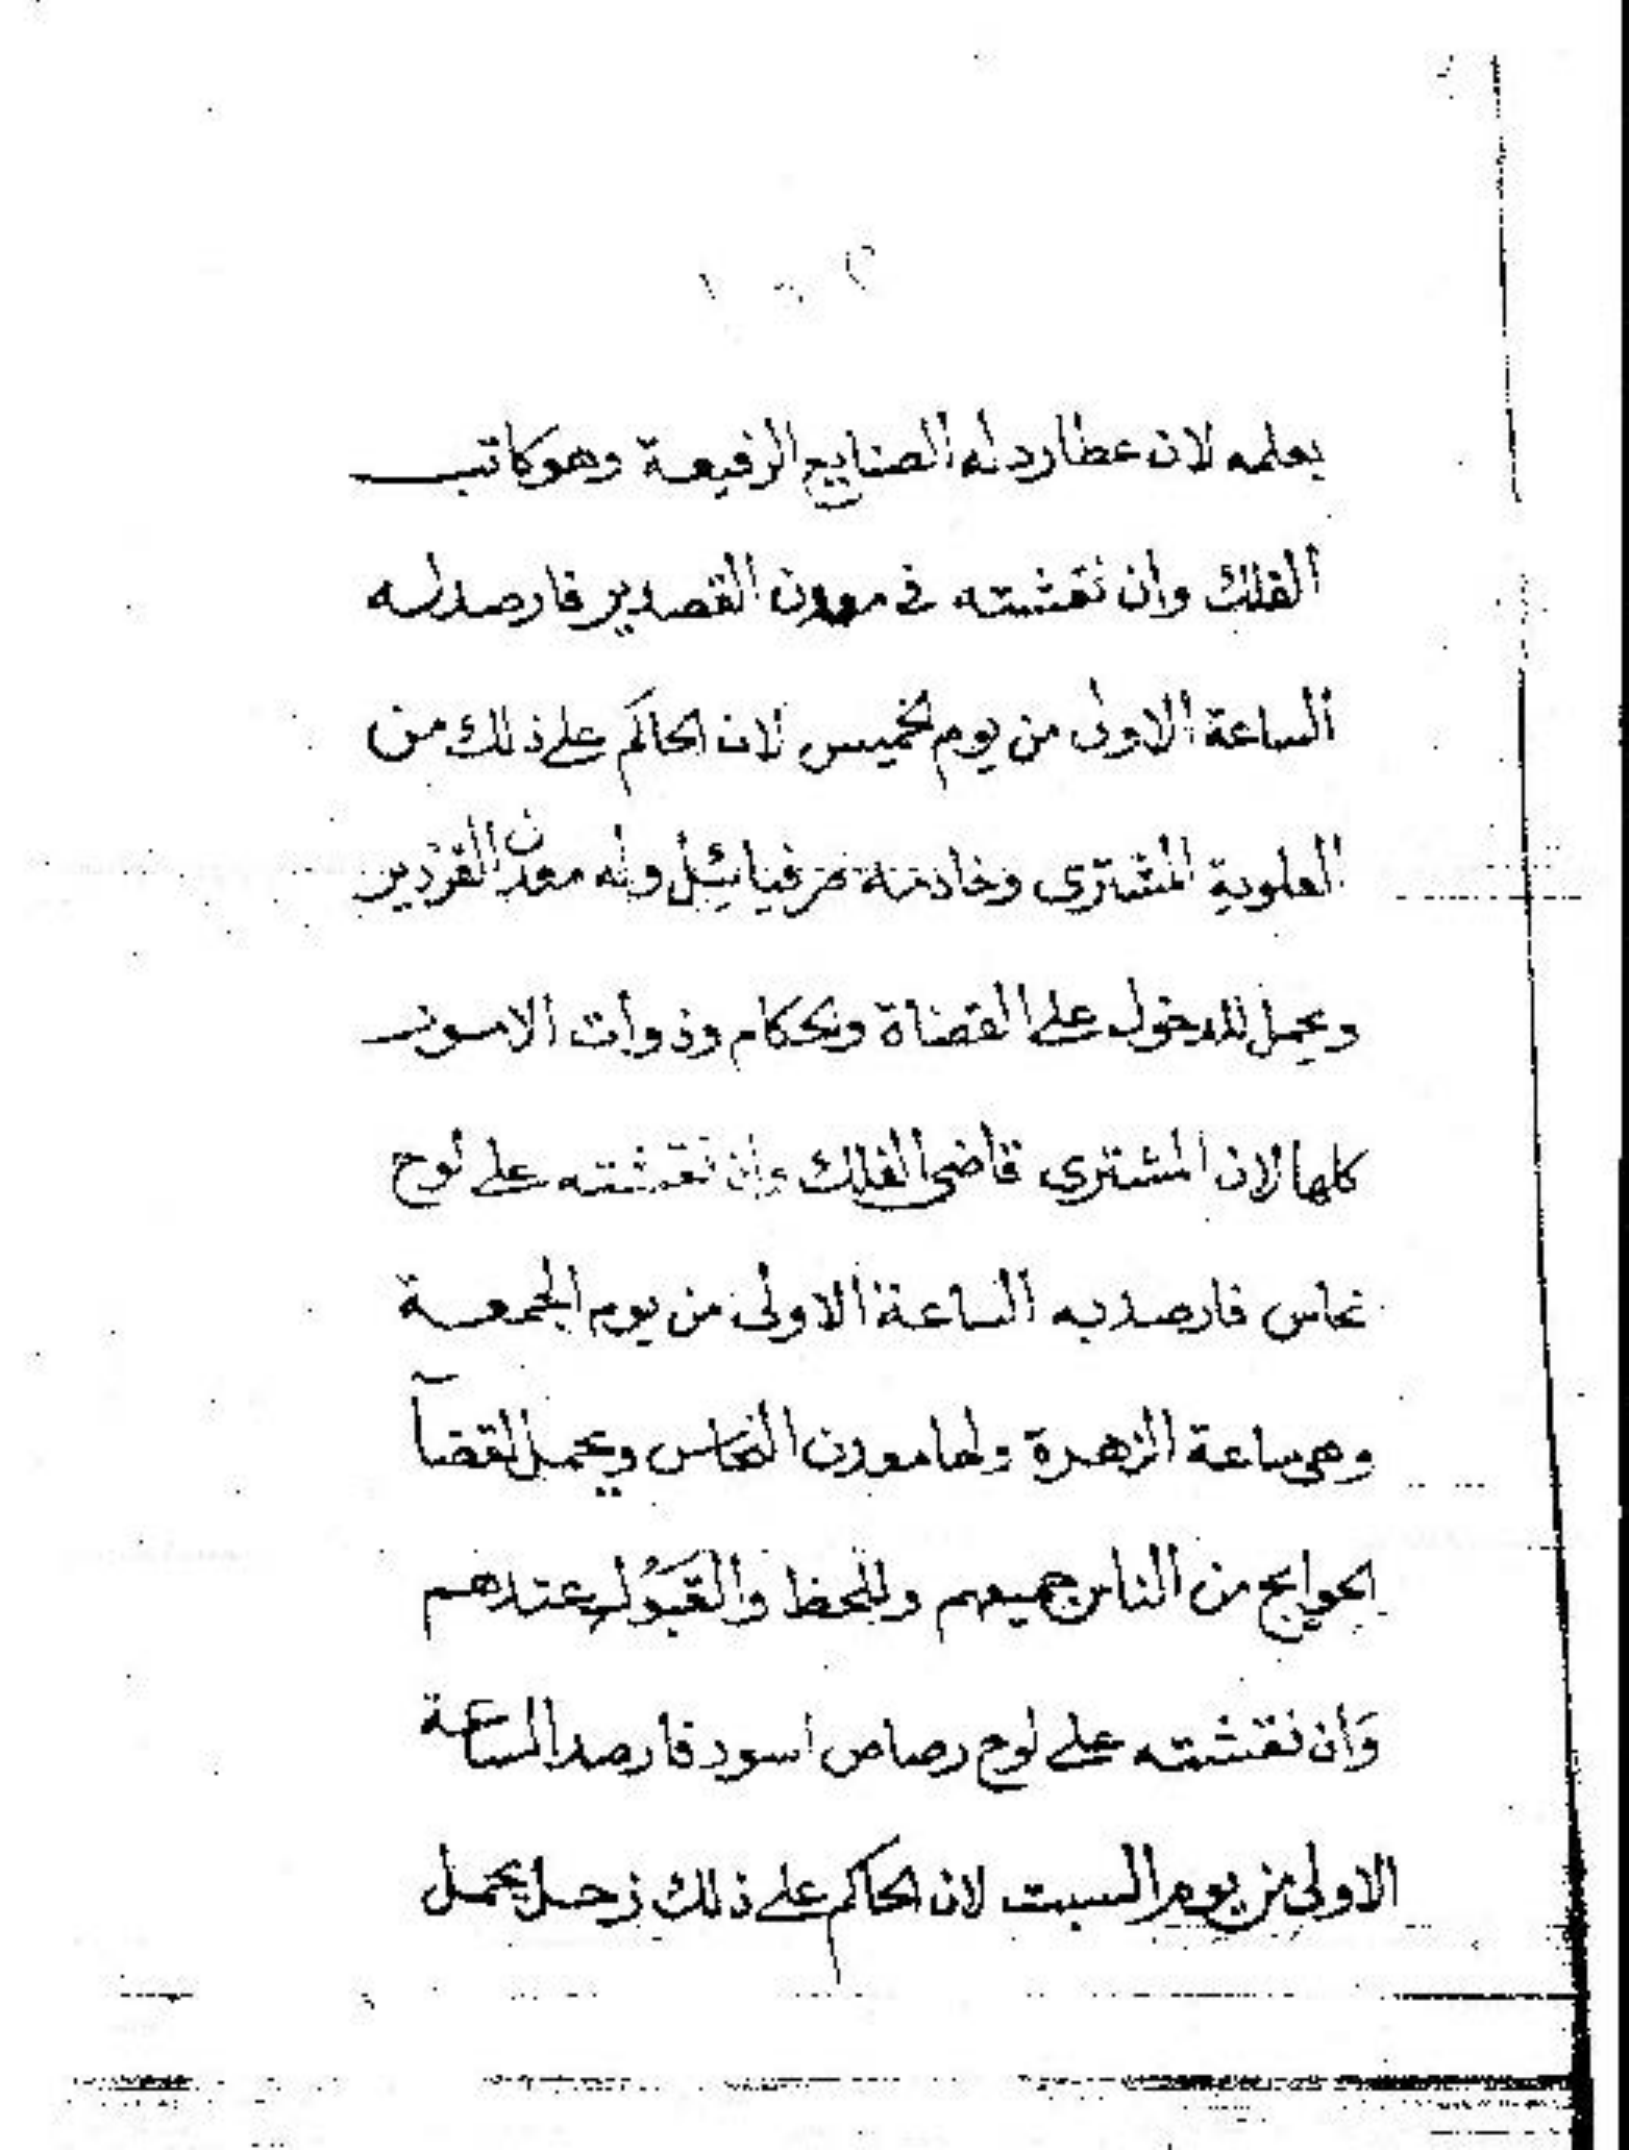 يعلمه لان عطارد له الصنايع الرفيعة وهو كاتب
الفلك وان نقشته في معدن القصدير فارصد له
الساعة الاولى من يوم الخميس لان الحاكم على ذلك من
العلوية المشتري وخادمه صرفيائيل وله معدن القزدير
ويحمل للدخول على القضاة والحكام وذوات الامور
كلها لان المشتري قاضي الفلك وان نقشته على لوح
نحاس فارصد به الساعة الاولى من يوم الجمعة
وهي ساعة الزهرة ولها معدن النحاس ويحمل لقضآ
الحوايج من الناس جميعهم وللحظ والقبَوُل عندهم
وَان نقشته على لوح رصاص اسود فارصد الساعة
الاولى من يوم السبت لان الحاكم على ذلك زحل يحمل